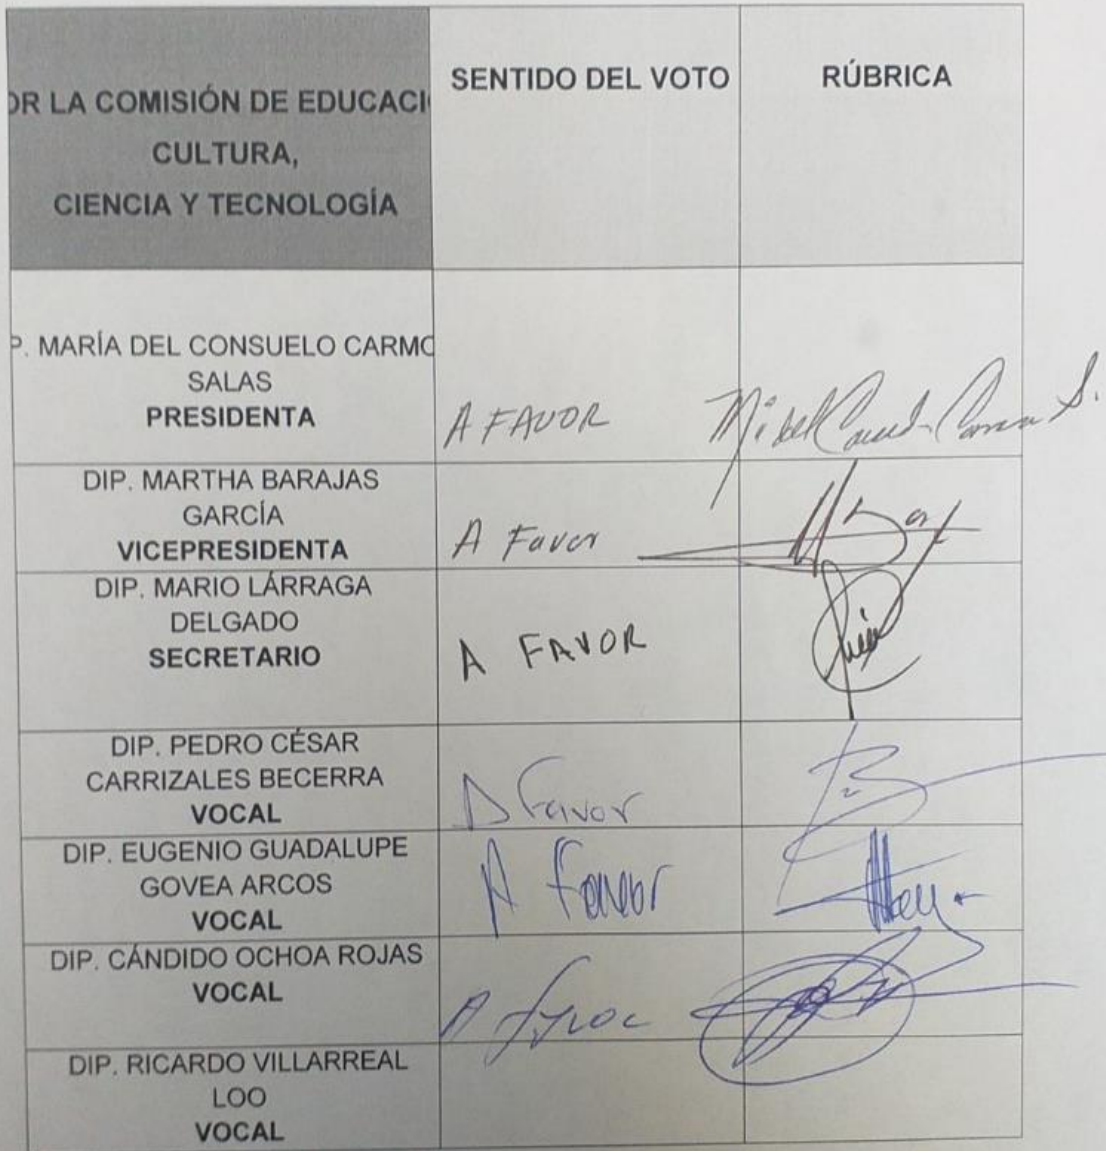 OR LA COMISIÓN DE EDUCACI
CULTURA,
CIENCIA Y TECNOLOGÍA
SENTIDO DEL VOTO
RÚBRICA
P. MARÍA DEL CONSUELO CARMO
SALAS
PRESIDENTA
A FAVOR
DIP. MARTHA BARAJAS
GARCÍA
VICEPRESIDENTA
A Favor
DIP. MARIO LÁRRAGA
DELGADO
SECRETARIO
A FAVOR
DIP. PEDRO CÉSAR
CARRIZALES BECERRA
VOCAL
A Favor
DIP. EUGENIO GUADALUPE
GOVEA ARCOS
VOCAL
A Favor
DIP. CÁNDIDO OCHOA ROJAS
VOCAL
A
DIP. RICARDO VILLARREAL
LOO
VOCAL